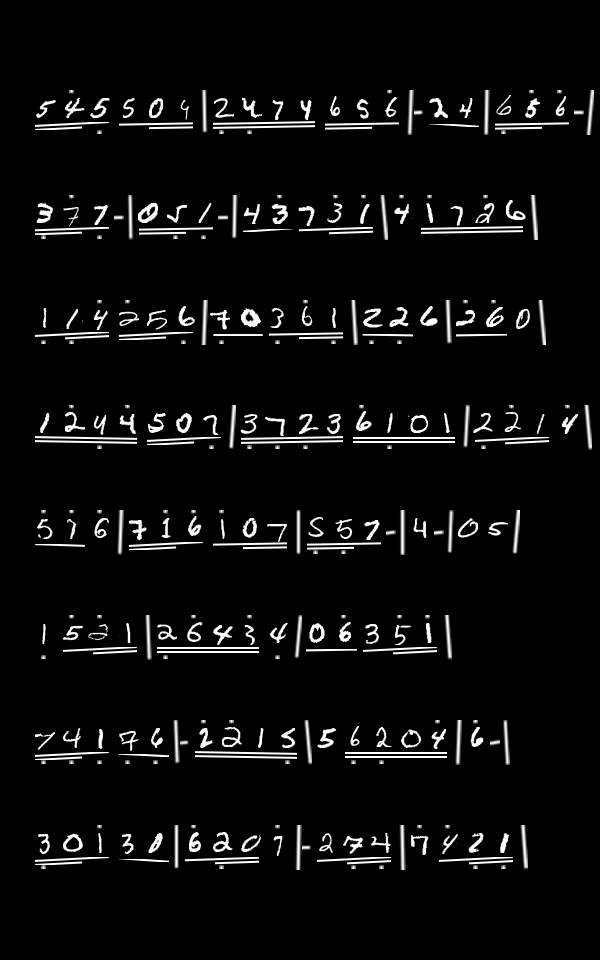 5 4 5 5 0 4 | 2 4 7 4 6 5 6 | - 2 4 | 6 5 6 - |
3 7 7 - | 0 5 1 - | 4 3 7 3 1 | 4 1 7 2 6 |
1 1 4 2 5 6 | 7 0 3 6 1 | 2 2 6 | 2 6 0 |
1 2 4 4 5 0 7 | 3 7 2 3 6 1 0 1 | 2 2 1 4 |
5 1 6 | 7 1 6 1 0 7 | 5 5 7 - | 4 - | 0 5 |
1 5 2 1 | 2 6 4 3 4 | 0 6 3 5 1 |
7 4 1 7 6 | - 2 2 1 5 | 5 6 2 0 4 | 6 - |
3 0 1 3 0 | 6 2 0 7 | - 2 7 4 | 7 4 2 1 |